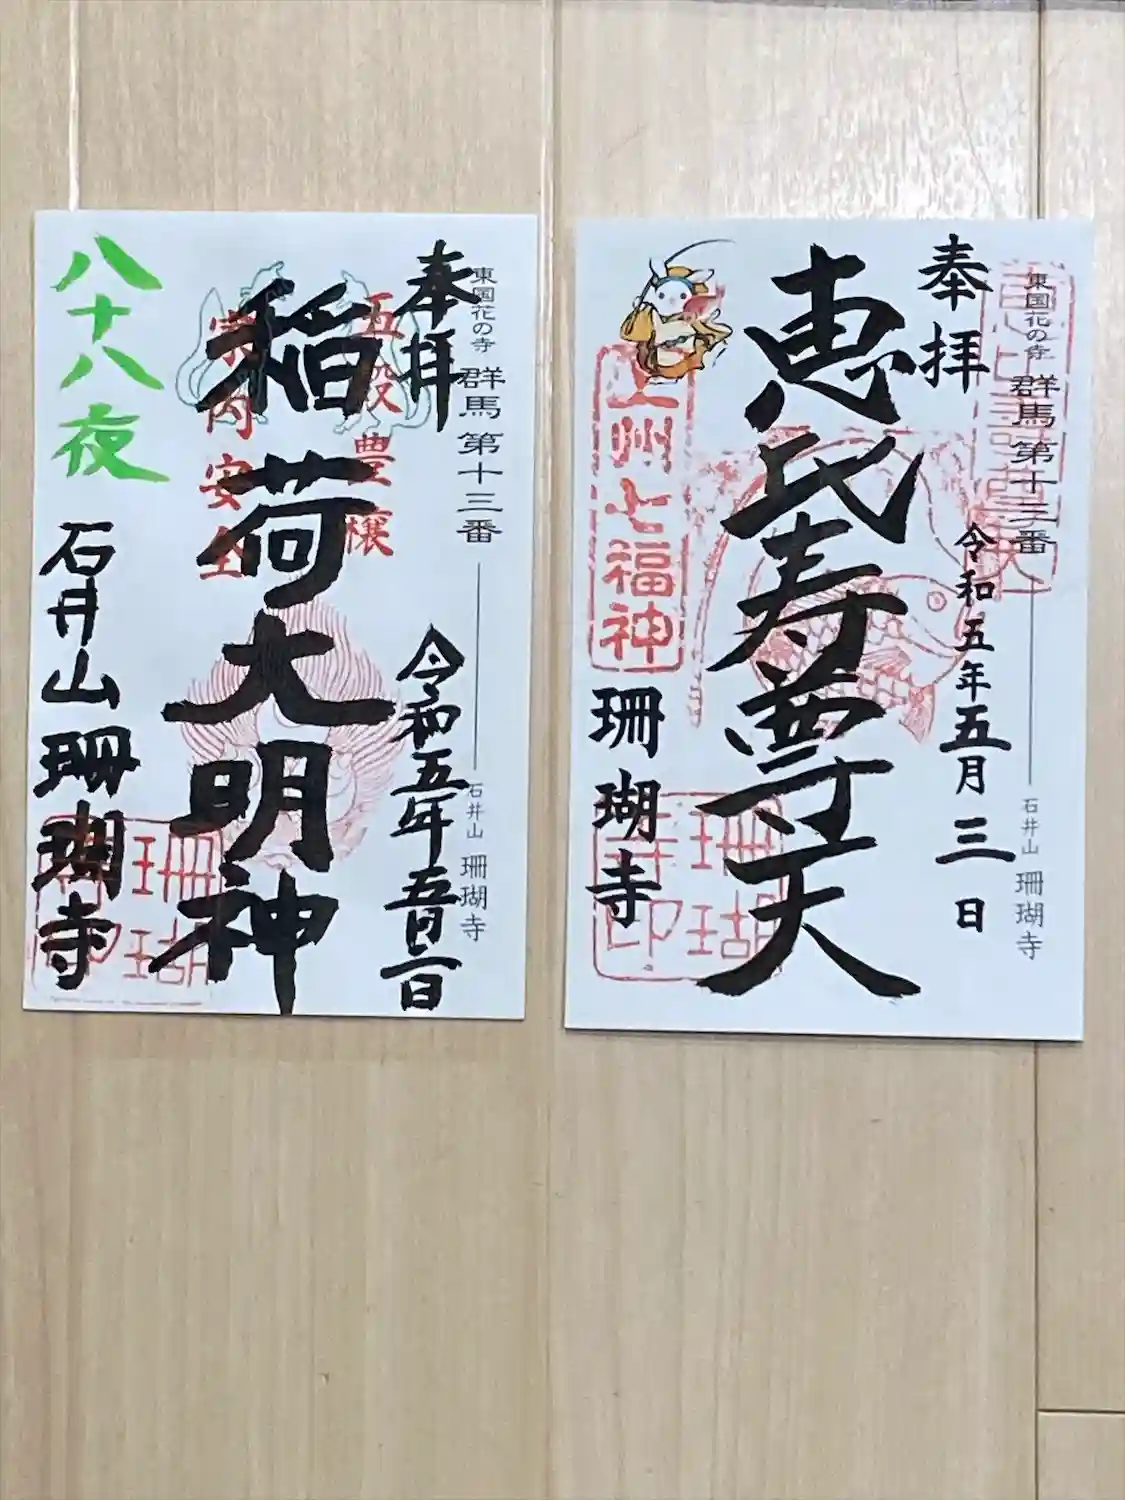 八十八夜
石井山珊瑚寺
家内安全
稲荷大明神
五穀豊穣
奉拝
令和五年
東国花の寺 群馬第十三番
石井山 珊瑚寺
珊瑚
寺印
上州七福神
珊瑚寺
恵比寿尊天
奉拝
令和五年五月三日
東国花の寺 群馬第十三番
石井山 珊瑚寺
珊瑚
寺印